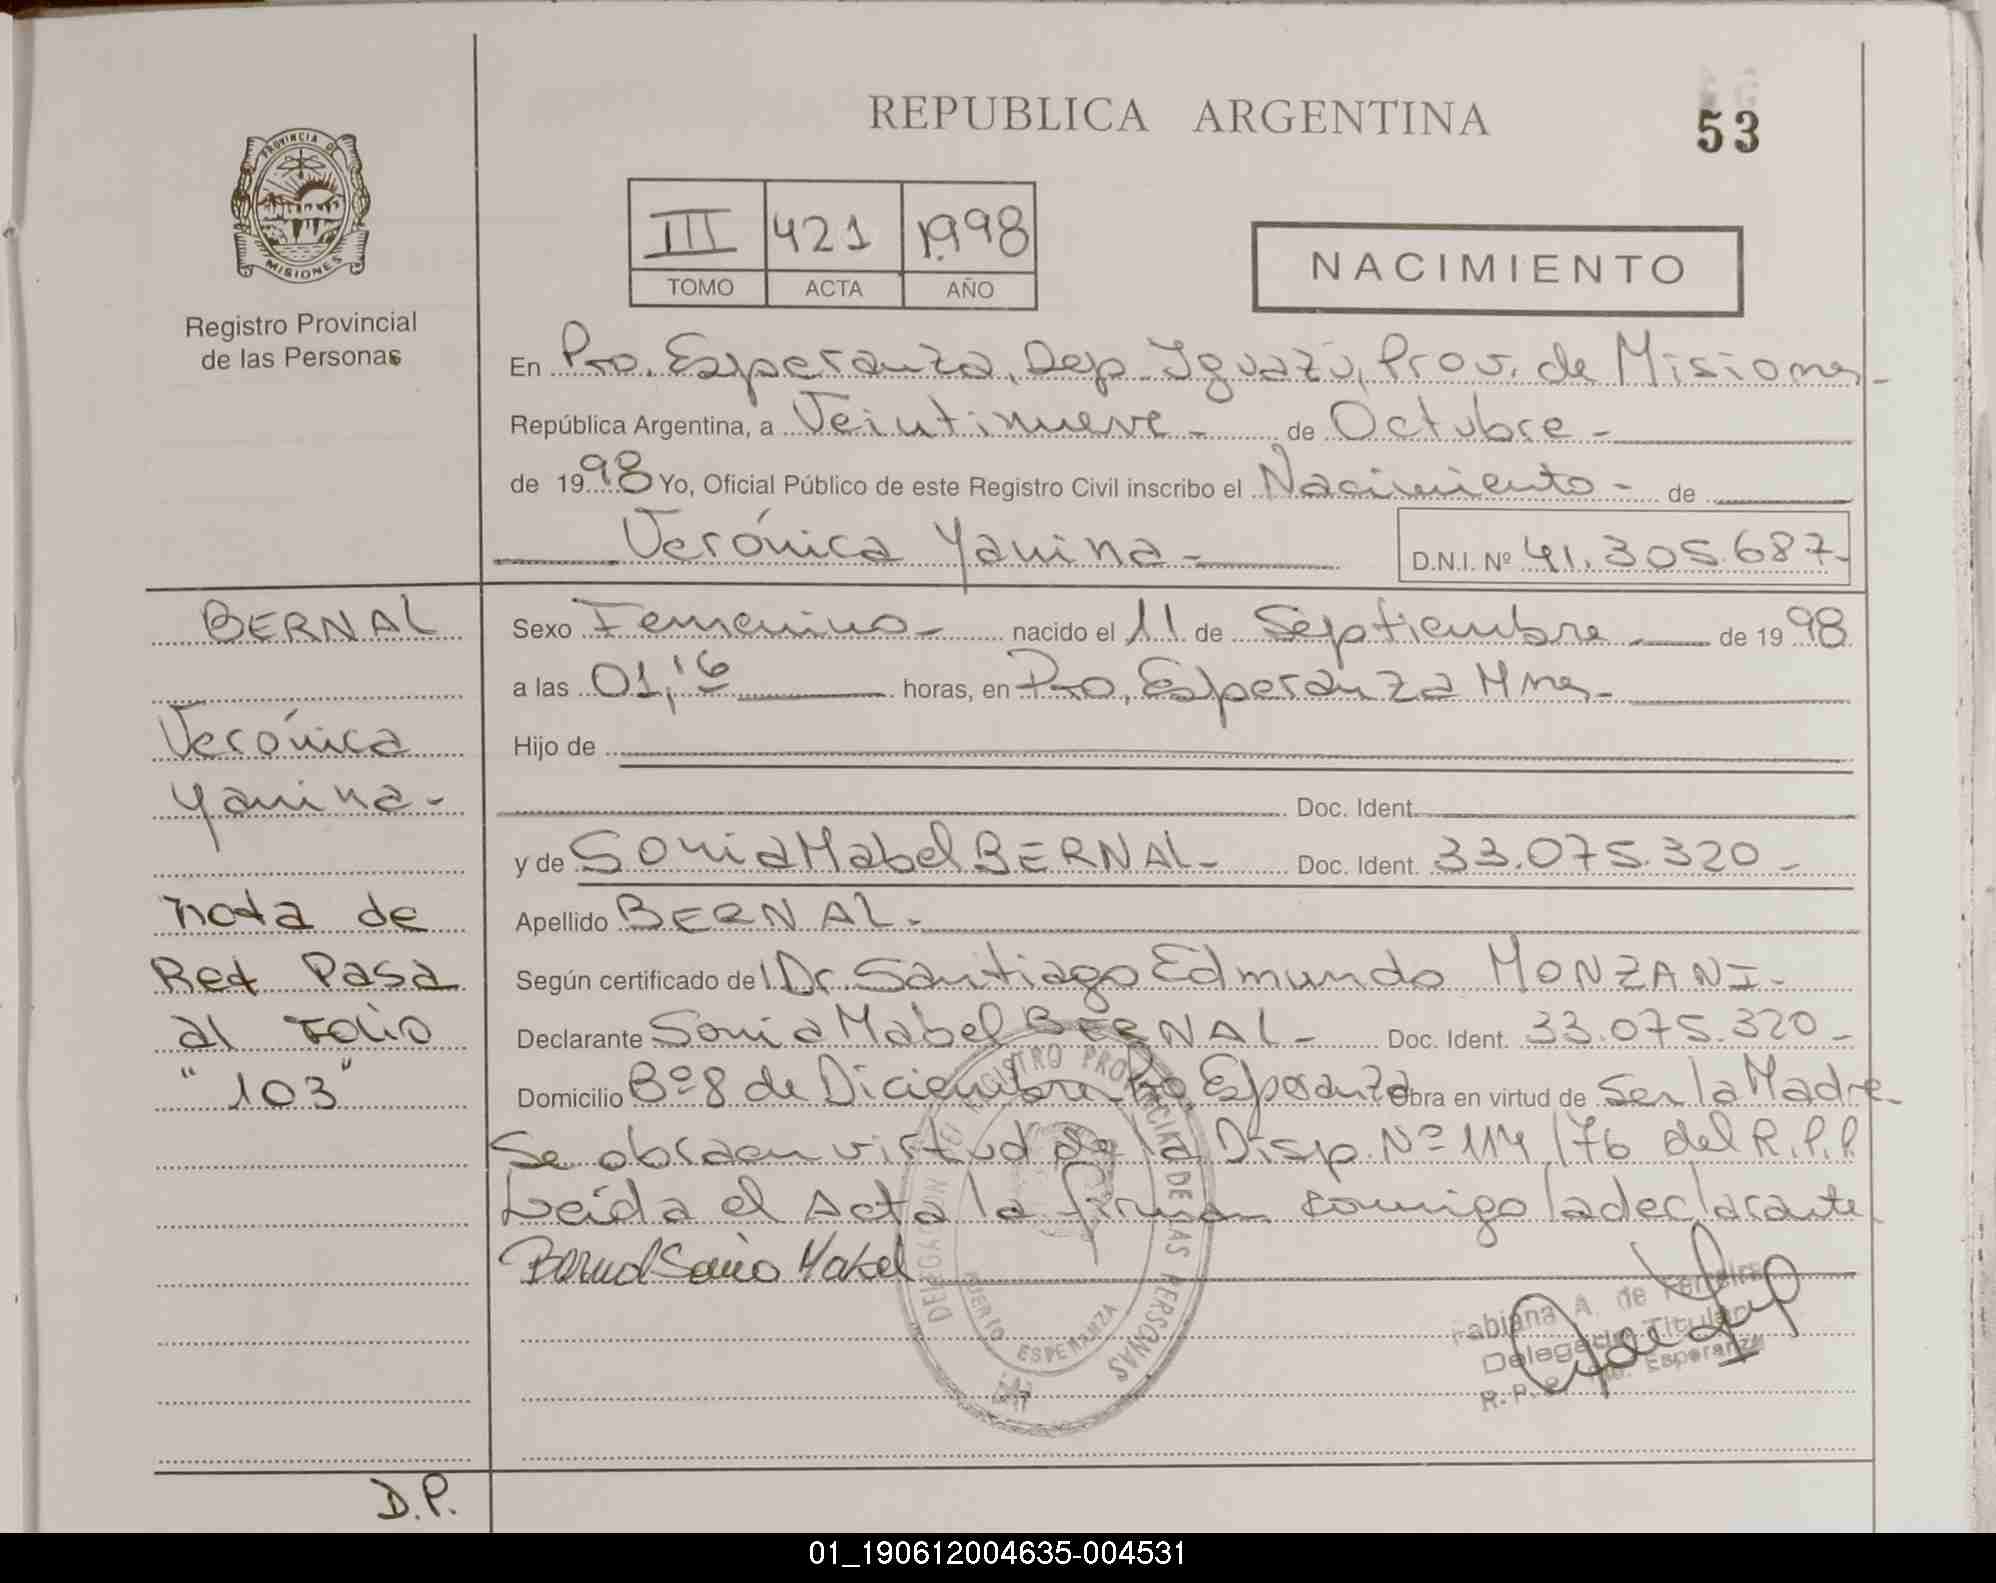 REPUBLICA ARGENTINA
53
PROVINCIA DE
MISIONES
Registro Provincial
de las Personas
III 421 1998
TOMO ACTA AÑO
NACIMIENTO
En Pto. Esperanza, Dep. Iguazú, Prov. de Misiones-
República Argentina, a Veintinueve - de Octubre -
de 1998 Yo, Oficial Público de este Registro Civil inscribo el Nacimiento - de
Verónica Yanina - D.N.I. Nº 41.305.687-
BERNAL
Verónica
Yanina-
nota de
Ret Pasa
al Folio
"103"
D.P.
Sexo Femenino - nacido el 11 de Septiembre de 1998
a las 01,16 horas, en Pto. Esperanza Mnes-
Hijo de
Doc. Ident.
y de Sonia Mabel BERNAL- Doc. Ident. 33.075.320-
Apellido BERNAL-
Según certificado de Dr. Santiago Edmundo MONZANI-
Declarante Sonia Mabel BERNAL- Doc. Ident. 33.075.320-
Domicilio Bº 8 de Diciembre Pto Esperanza Obra en virtud de Ser la Madre-
Se obra en virtud de la Disp. Nº 114/76 del R.P.P.
Leída el Acta la firma conmigo la declarante
Bernal Sonia Mabel
DELEGACION REGISTRO PROVINCIAL DE LAS PERSONAS
PUERTO ESPERANZA
Fabiana A. de Ferreira
Delegada Titular
R.P.P. Pto. Esperanza
01_190612004635-004531